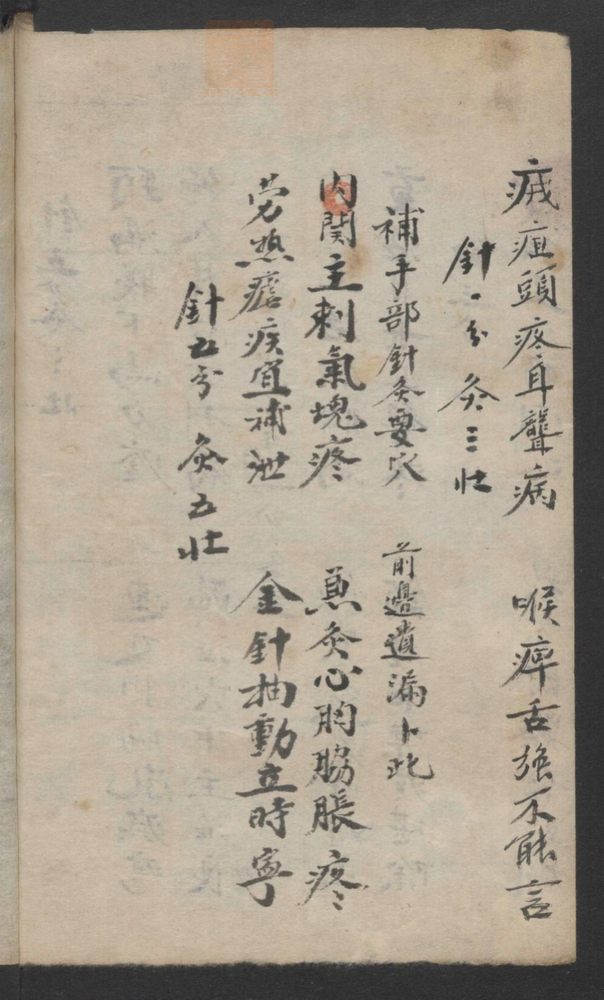 疽頭疼耳聾病　喉痺舌強不能言
針一分　灸三壯
補手部針灸要穴　前邊遺漏卜此
內関主刺氣塊疼　兼灸心胸脇脹疼
劳熱瘧疾宜補泄　金針抽動立時寧
針五分　灸五壯